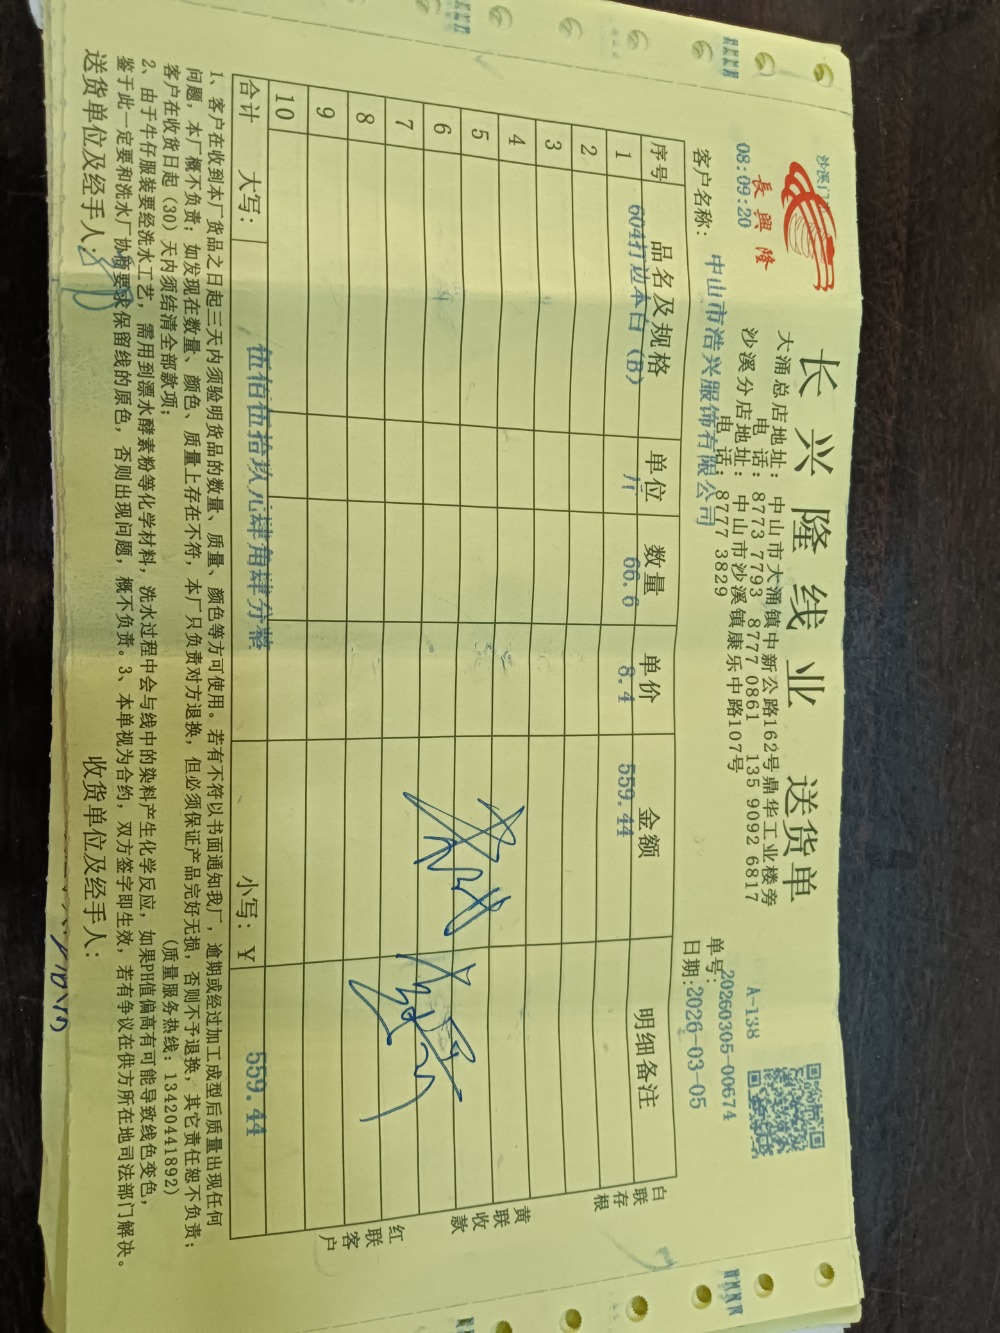 長興隆
长兴隆线业 送货单
沙溪门
08:09:20
大涌总店地址: 中山市大涌镇中新公路162号鼎华工业楼旁
电 话: 8773 7793 8777 0861 135 9092 6817
沙溪分店地址: 中山市沙溪镇康乐中路107号
电 话: 8777 3829
A-138
单号: 20260305-00674
客户名称: 中山市浩兴服饰有限公司
日期: 2026-03-05
序号 品名及规格 单位 数量 单价 金额 明细备注
1 604打边本白(B) 66.6 8.4 559.44
2
3
4
5
6
7
8
9
10
合计 大写: 伍佰伍拾玖元肆角肆分整 小写: ¥ 559.44
白联存根
黄联收款
红联客户
1、客户在收到本厂货品之日起三天内须验明货品的数量、质量、颜色等方可使用。若有不符以书面通知我厂,逾期或经过加工成型后质量出现任何
问题,本厂概不负责;如发现在数量、颜色、质量上存在不符,本厂只负责对方退换,但必须保证产品完好无损,否则不予退换,其它责任恕不负责;
客户在收货日起(30)天内须结清全部款项; (质量服务热线:13420441892)
2、由于牛仔服装要经洗水工艺,需用到漂水酵素粉等化学材料,洗水过程中会与线中的染料产生化学反应,如果PH值偏高有可能导致线色变色,
鉴于此一定要和洗水厂协商要求保留线的原色,否则出现问题,概不负责。3、本单视为合约,双方签字即生效,若有争议在供方所在地司法部门解决。
送货单位及经手人: 收货单位及经手人: